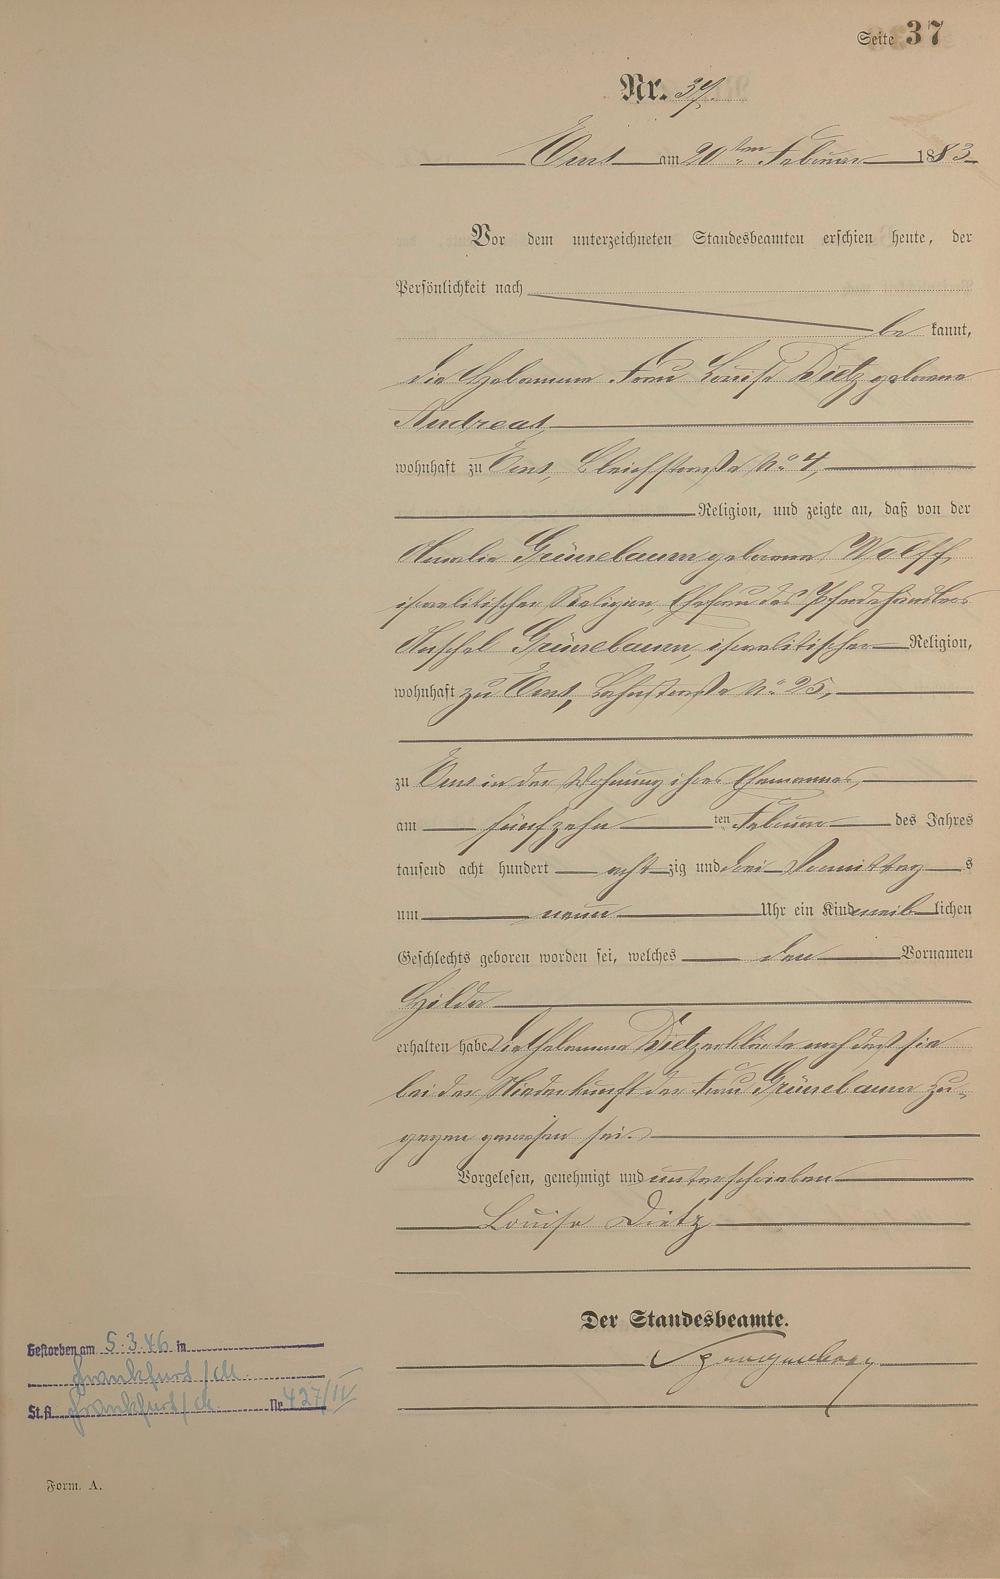 Seite 37
Nr. 37.
Ems am 20ten Februar 1883
Vor dem unterzeichneten Standesbeamten erschien heute, der
Persönlichkeit nach
be kannt,
die Hebamme Frau Louise Dietz geborene
Andreas,
wohnhaft zu Ems, Bleichstraße No 4,
Religion, und zeigte an, daß von der
Amalie Grünebaum geborene Wolff,
israelitischer Religion Ehefrau des Pferdehändlers
Anschel Grünebaum, israelitischer Religion,
wohnhaft zu Ems, Lahnstraße No 25,
zu Ems in der Wohnung ihres Ehemannes,
am fünfzehnten Februar des Jahres
tausend acht hundert achtzig und drei Vormittags
um neun Uhr ein Kind weiblichen
Geschlechts geboren worden sei, welches den Vornamen
Hilda
erhalten habe. Die Hebamme Dietz erklärte noch daß sie
bei der Niederkunft der Frau Grünebaum zu-
gegen gewesen sei.
Vorgelesen, genehmigt und unterschrieben
Louise Dietz
Der Standesbeamte.
Spangenberg
Gestorben am 5.3.46 in
Frankfurt/M.
St.A. Frankfurt/M. Nr. 427/IV
Form. A.